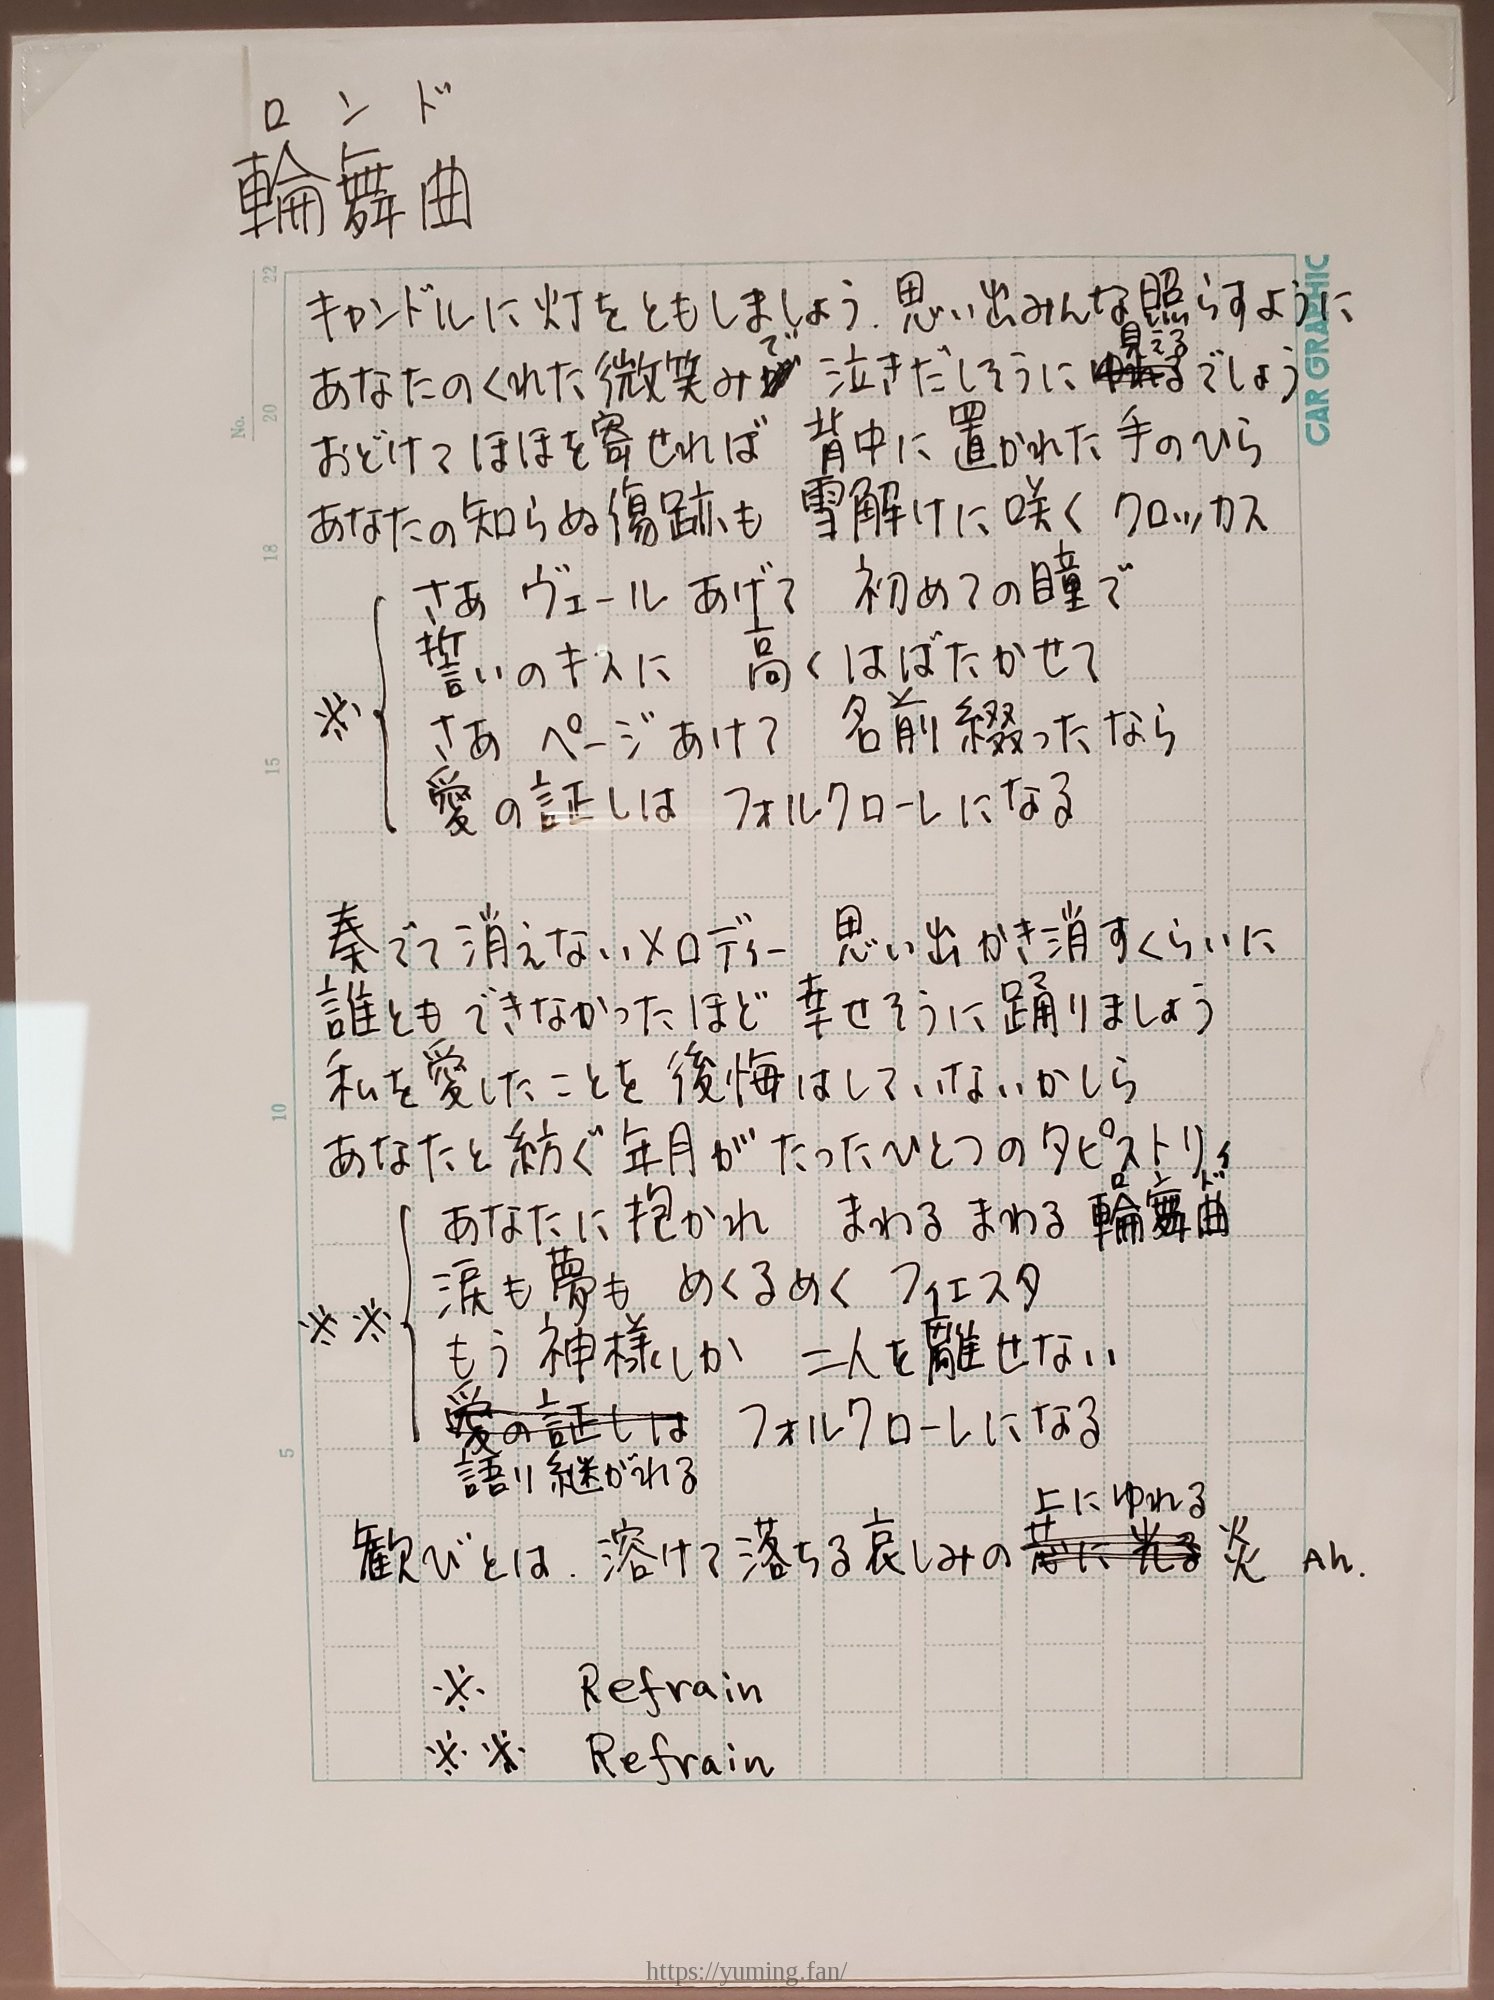 ロンド
輪舞曲
No.
22
20
18
15
10
5
CAR GRAPHIC
キャンドルに灯をともしましょう. 思い出みんな照らすように
で 見える
あなたのくれた微笑み 泣きだしそうに でしょう
おどけてほほを寄せれば 背中に置かれた手のひら
あなたの知らぬ傷跡も 雪解けに咲くクロッカス
さあ ヴェールあげて 初めての瞳で
誓いのキスに 高くはばたかせて
※
さあ ページあけて 名前綴ったなら
愛の証しは フォルクローレになる
奏でて消えないメロディー 思い出かき消すくらいに
誰ともできなかったほど 幸せそうに踊りましょう
私を愛したことを後悔はしていないかしら
あなたと紡ぐ年月がたったひとつのタピストリィ
ロンド
あなたに抱かれ まわるまわる輪舞曲
涙も夢も めくるめく フィエスタ
※※
もう神様しか 二人を離せない
愛の証しは フォルクローレになる
語り継がれる
上にゆれる
歓びとは. 溶けて落ちる哀しみの 炎 Ah.
※ Refrain
※※ Refrain
https://yuming.fan/